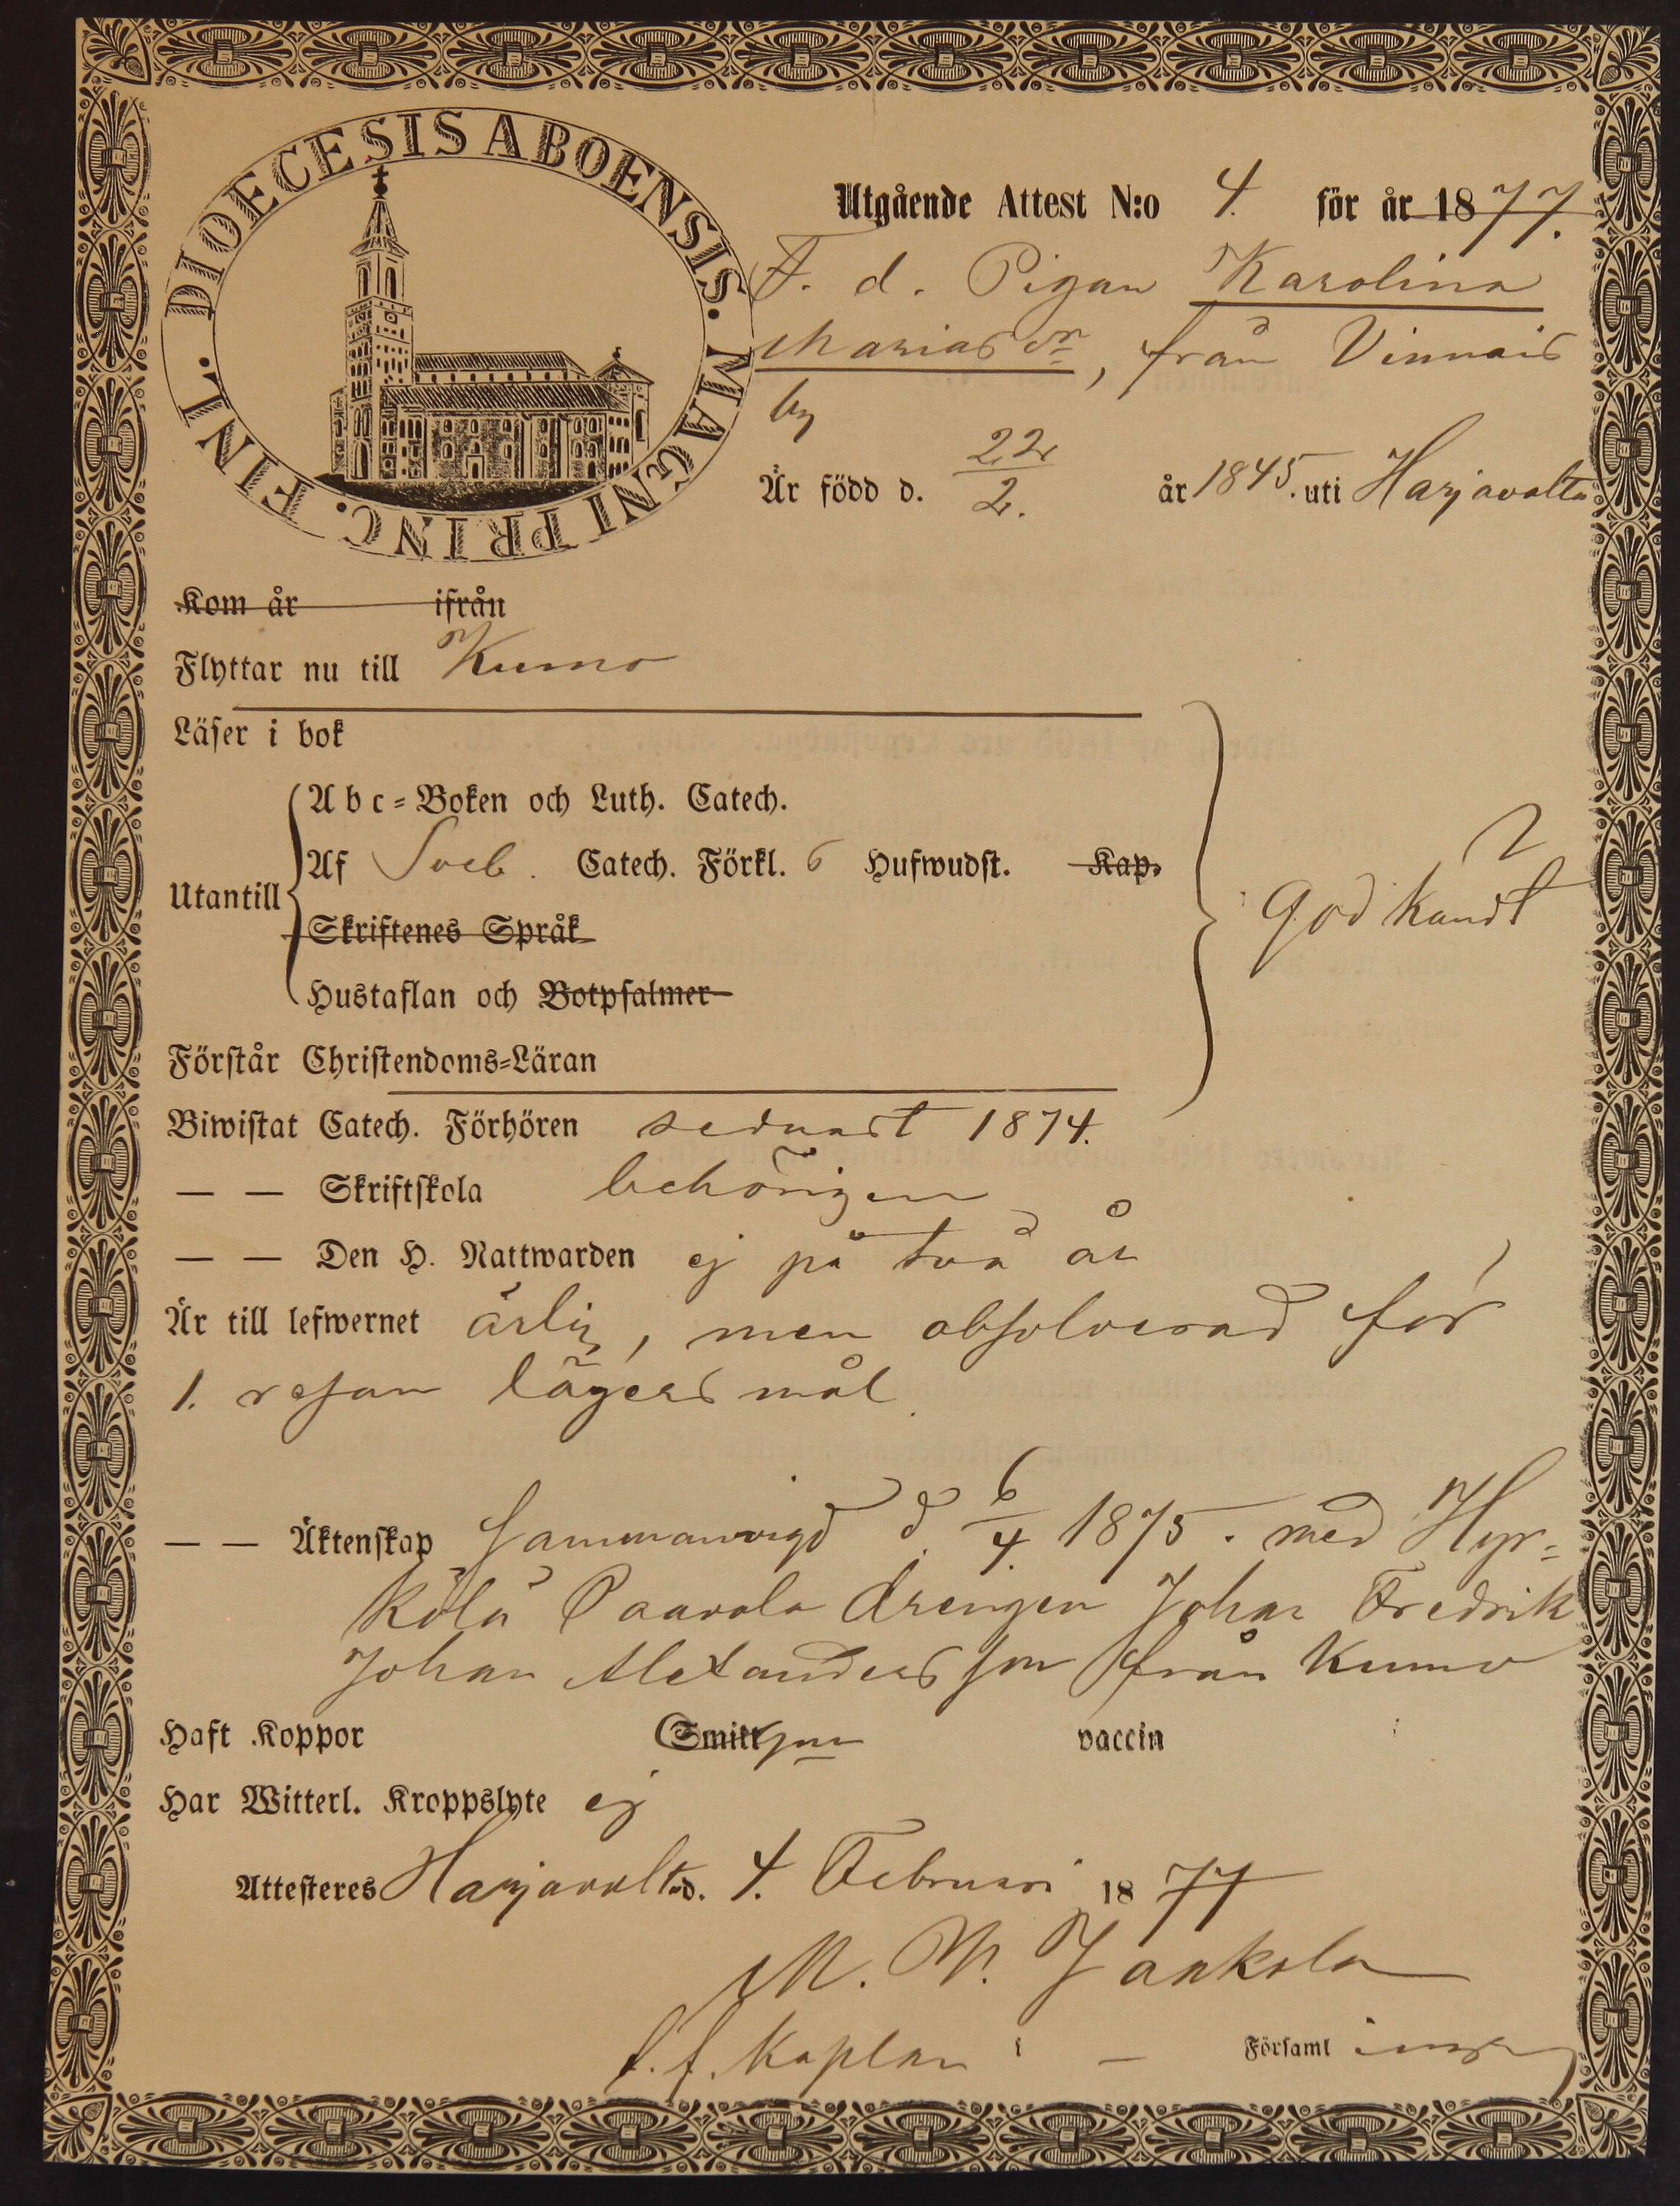 DIOECESIS ABOENSIS. MAGNI PRINC. FINL.
Utgående Attest N:o 4. för år 1877.
F. d. Pigan Karolina
Mariasdr, från Vinnais
by
Är född d. 22/2. år 1845. uti Harjavalta
Kom år ifrån
Flyttar nu till Kumo
Läser i bok
Abc-Boken och Luth. Catech.
Utantill Af Sveb. Catech. Förkl. 6 Hufwudst. Kap.
Godkändt
Skriftenes Språk
Hustaflan och Botpsalmer
Förstår Christendoms-Läran
Biwistat Catech. Förhören sednast 1874.
— — Skriftskola behörigen
— — Den H. Nattwarden ej på två år
Är till lefwernet ärlig, men absolverad för
1. resan lägersmål.
— — Äktenskap Sammanvigd d. 6/4. 1875. med Hyr-
kölä Paavola drengen Johan Fredrik
Johan Alexandersson från Kumo
Haft Koppor Smitt vaccin
Har Witterl. Kroppslyte ej
Attesteres Harjavalta d. 4. Februari 1877
M. W. Jankola
f.f. Kaplan i — Församl